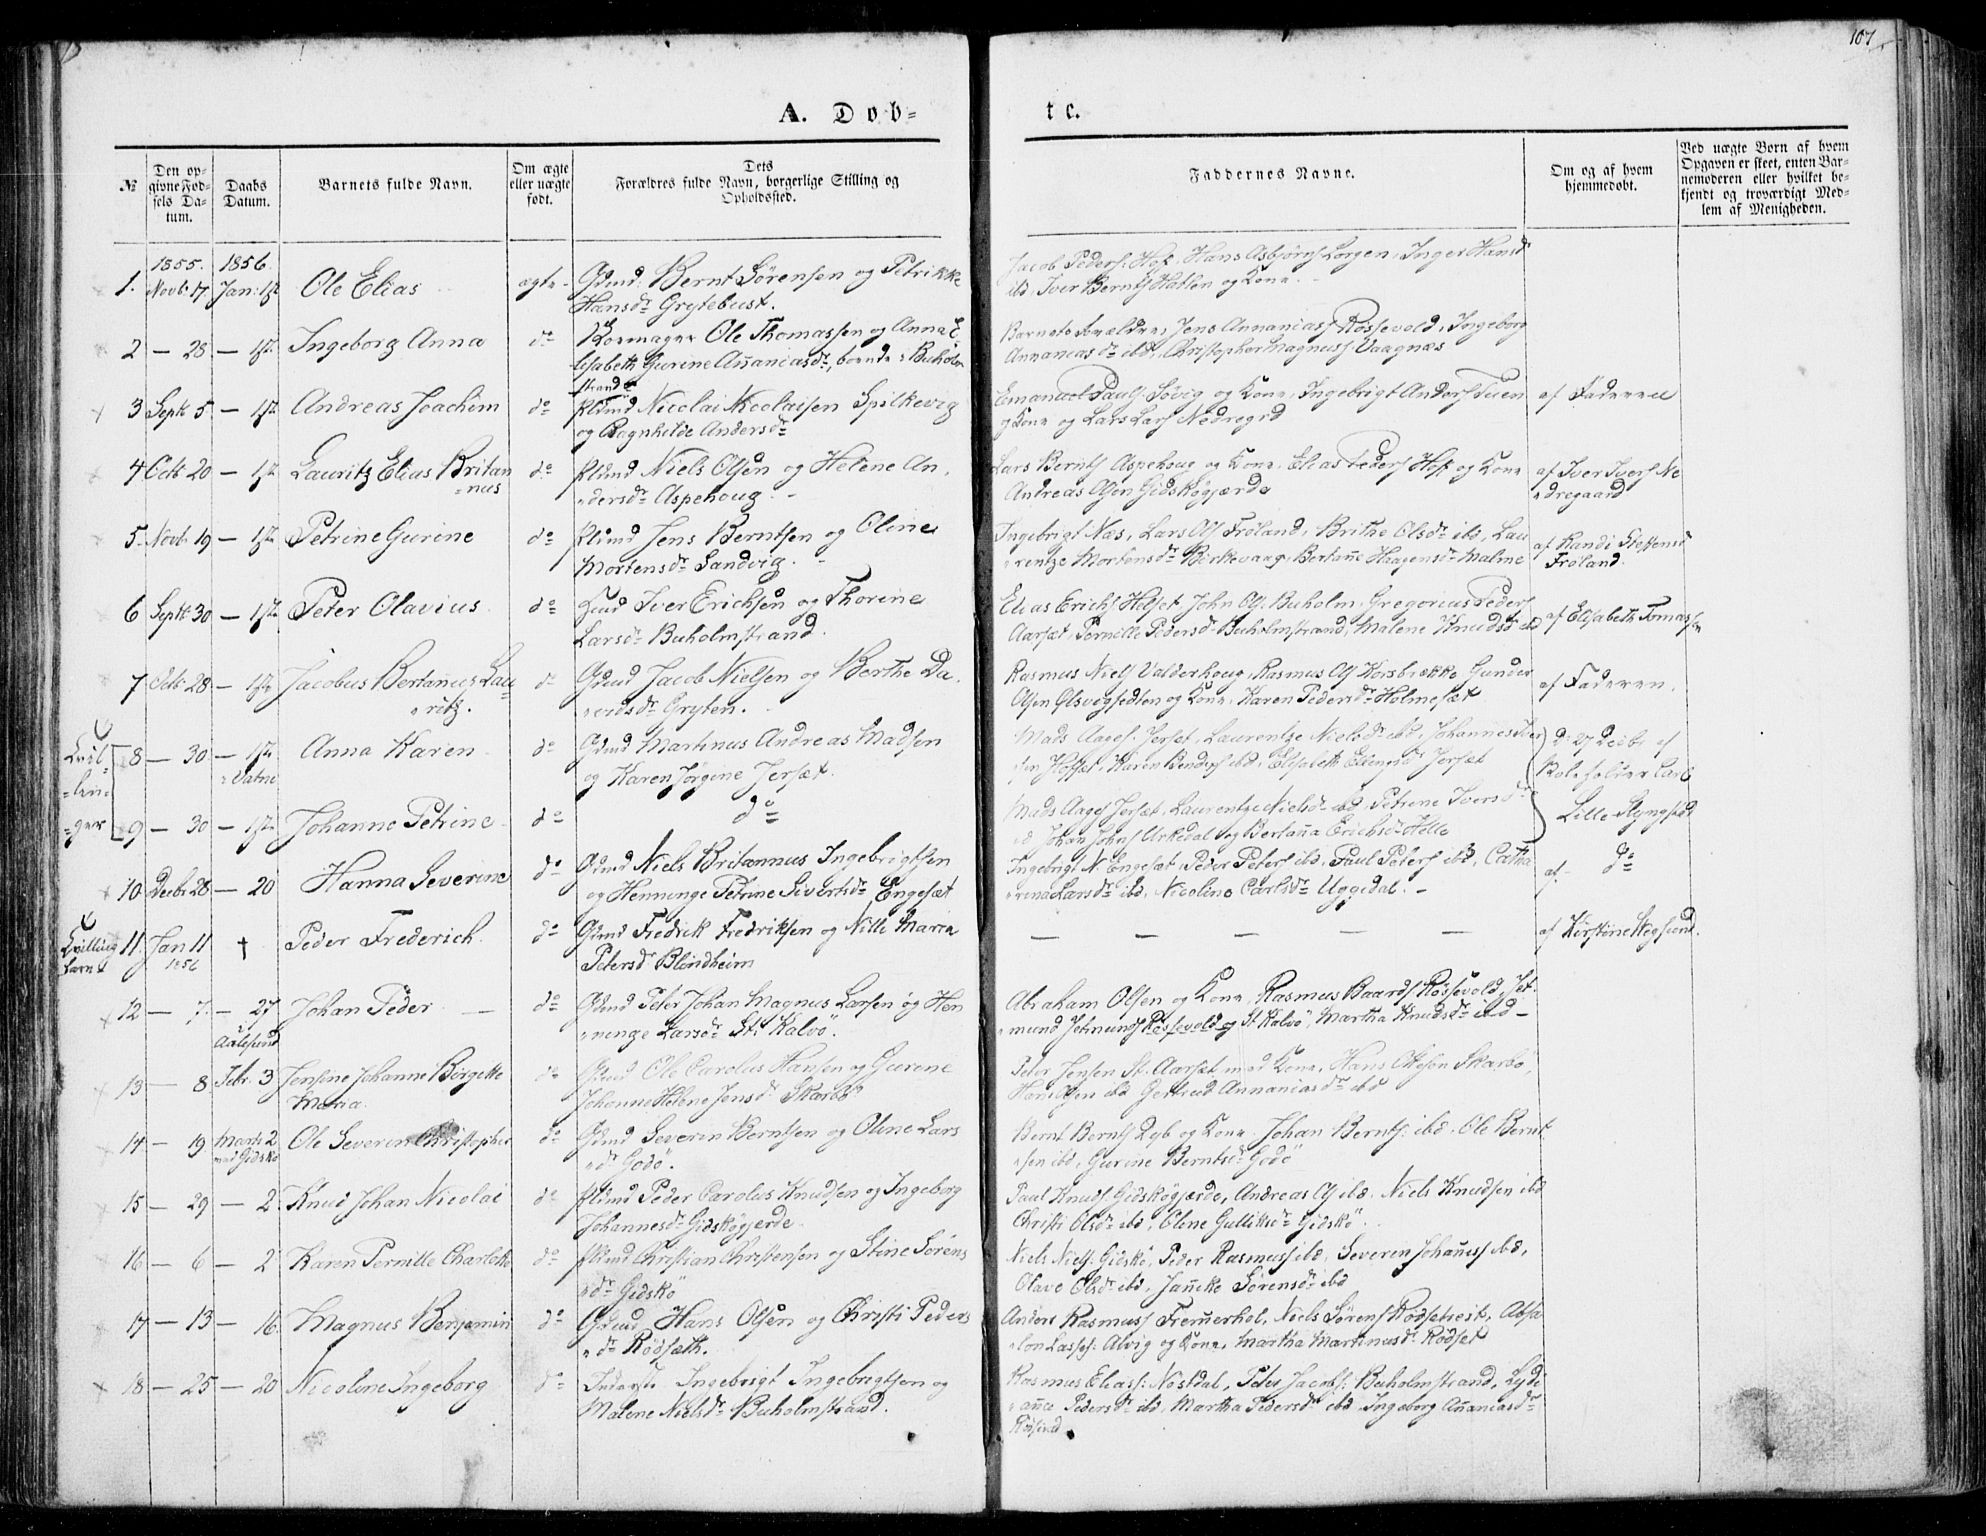 107
A. Døb-
te.
№
Den op-
givne Fød-
sels Da-
tum.
Daabs
Datum.
Barnets fulde Navn.
Om ægte
eller uægte
født.
Dets
Forældres fulde Navn, borgerlige Stilling og
Opholdssted.
Faddernes Navne.
Om og af hvem
hjemmedøbt.
Ved uægte Børn af hvem
Opgaven er skeet, enten Bar-
nemoderen eller hvilket be-
kjendt og troværdigt Med-
lem af Menigheden.
1855. 1856.
1. Novb: 17 Jan: 1ste Ole Elias ægte Gdmd: Bernt Sørensen og Petrikke
Hansdr Grytebust.
Jacob Peders: Hof, Hans Asbjørns Lorgen, Inger Hansdr
ibd, Iver Bernts Hatlen og Kone
2 — 28 — 1ste Ingeborg Anna do Skomager Ole Thomassen og Anna E-
lisabeth Gurine Ananiasdr, boende Buholm
strand
Barnets Forældre, Jens Annaniass Røssevold, Ingeborg
Annaniasdr ibd, Christopher Magnuss Vaagnæs
3 Septb 5 — 1ste Andreas Joachim do Plmd Nicolai Nicolaisen Spilkevig
og Ragnhilde Andersdr
Emanuel Pauls: Søvig og Kone, Ingebrigt Anders Tuen
og Kone og Lars Lars Nedregrd
af Faderen
4 Octb 20 — 1ste Lauritz Elias Britan
nus do Plmd Niels Olsen og Helene An-
dersdr Aspehoug
Lars Bernts Aspehoug og Kone, Elias Peders Hof og Kone
Andreas Olsen Gidskøgjerde
af Iver Ivers Ne
dregaard
5 Novb 19 — 1ste Petrine Gurine do Plmd Jens Berntsen og Oline
Mortensdr Sandvig.
Ingebrigt Næs, Lars Ols Frøland, Brithe Olsdr ibd, Lau
rentze Mortensdr Birkevaag, Bertanne Haagensdr Malme
af Randi Steffensdr
Frøland.
6 Septb 30 — 1ste Peter Olavius do Iver Erichsen og Thorine
Larsdr Buholmstrand.
Elias Erichs Helset, John Ols. Buholm, Gregorius Peders
Aarset, Pernille Pedersdr Buholmstrand, Malene Knudsdr ibd
af Elisabeth Tomassen
7 Octb 28 — 1ste Jacobus Bertanus Lau
ritz. do Gdmd Jacob Nielsen og Berthe Da-
vidsdr Gryten.
Rasmus Niels Valderhoug, Rasmus Ols Korsbrekke Gunder
Olsen Olsvigsedlen og Kone, Karen Pedersdr Holmeset
af Faderen.
Tvil-
lin-
ger
8 — 30 — 1ste
Vatne
Anna Karen do Gdmd Martinus Andreas Madsen
og Karen Jørgine Jerset.
Mads Aages: Jerset, Laurentze Nielsdr ibd, Johannes
Hofset, Karen ibd, Elisabeth Jerset
D: 27 Decbr af
Skoleholder Carl
9 — 30 — 1ste Johanne Petrine do do
Mads Aages Jerset, Laurentze Nielsdr ibd, Petrine Iversdr
ibd Johan Johns Urkedal og Bertanna Erichsdr Helle
Lille Slyngstad
10 Decbr 28 — 20 Hanna Severine do Gdmd Niels Britannus Ingebrigtsen
og Henninge Petrine Sivertsdr Engeset
Ingebrigt N. Engeset, Peder Peters ibd, Paul Peters ibd, Catha
rina Larsdr ibd, Nicoline Carlsdr Uggedal. —
af do
Tvilling
barn
11 Jan 11
1856
†
Peder Frederich. do Gdmd Fredrik Fredriksen og Nille Maria
Petersdr Blindheim
— — — — —
af Kirstine Hegsund.
12 — 7. — 27
Aalesund
Johan Peder — do Gdmd Peter Johan Magnus Larsen og Hen
ninge Larsdr St: Kalvø.
Abraham Olsen og Kone, Rasmus Baards Røssevold, Jet-
mund Jetmunds Røssevold og St Kalvø, Martha Knudsdr ibd —
13 — 8 Febr. 3 Jensine Johanne Birgitte
Maria. do Gdmd Ole Carolus Hansen og Gurine
Johanne Helene Jensdr Skarbø
Peter Jensen St. Aarset med Kone, Hans Ottesen Skarbø,
Hans Olsen ibd Gertrud Annaniasdr ibd
14 — 19 Marts 2
ved Gidskø
Ole Severin Christopher do Gdmd Severin Berntsen og Oline Lars
dr Godø.
Bernt Bernts Dyb og Kone, Johan Bernts: ibd. Ole Bernt
sen ibd, Gurine Berntsdr Godø
15 — 29 — 2 Knud Johan Nicolai do Plmd Peder Carolus Knudsen og Ingeborg
Johannesdr Gidskøgjerde
Paul Knuds: Gidskøgjerde, Andreas Ols ibd. Niels Knudsen ibd
Christi Olsdr ibd, Oline Gulliksdr Gidskø.
16 — 6 — 2 Karen Pernille Charlotte do Plmd Christian Christensen og Stine Sørens
dr Gidskø
Niels Niels: Gidskø, Peder Rasmuss ibd, Severin Johanes ibd,
Olave Olsdr ibd, Janike Sørensdr ibd
17 — 13 — 16 Magnus Benjamin do Gdmd Hans Olsen og Christi Peders
dr Rødsæth.
Anders Rasmuss Fremerhol, Niels Sørens Rødsetreit, Absa
lon Lasses: Alvig og Kone, Martha Martinusdr Rødset
18 — 25 — 20 Nicoline Ingeborg do Inderste Ingebrigt Ingebrigtsen og
Malene Nielsdr Buholmstrand.
Rasmus Elias: Nøstdal, Peter Jacobs: Buholmstrand, Lydi
anna Pedersdr ibd, Martha Pedersdr ibd. Ingeborg Ananiasdr